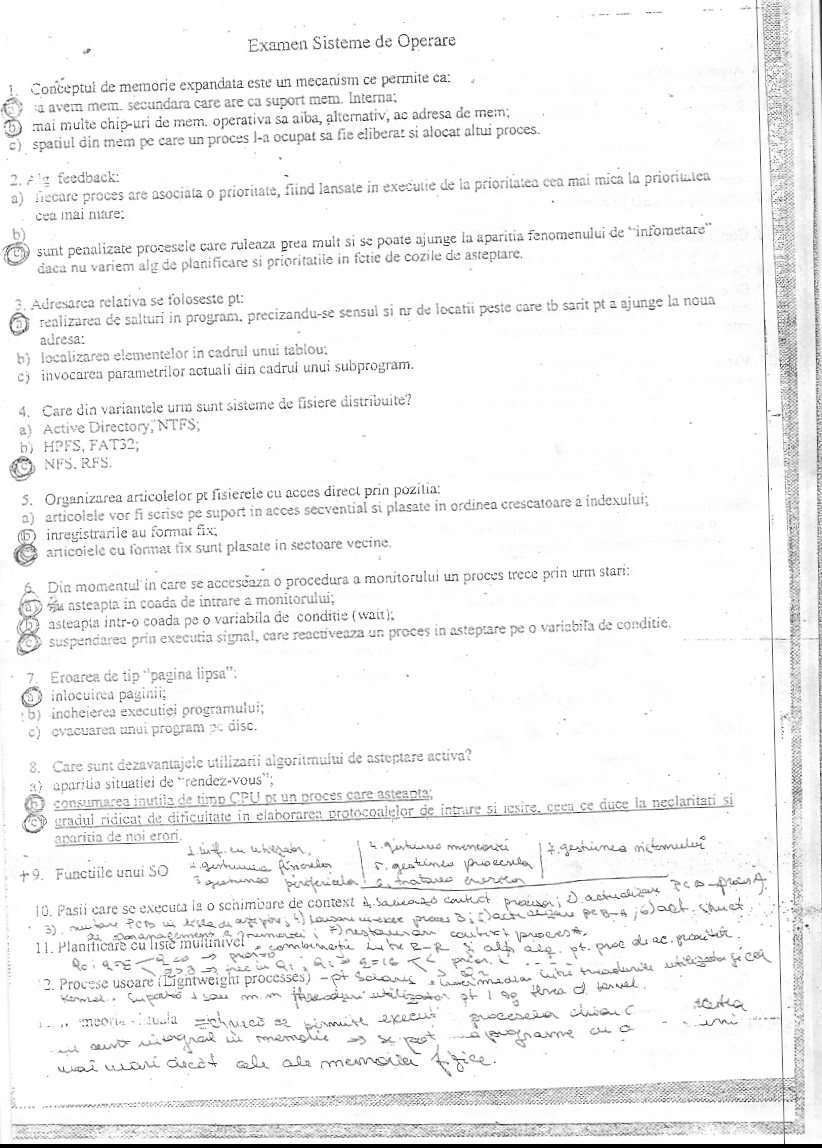 Examen Sisteme de Operare
1. Conceptul de memorie expandata este un mecanism ce permite ca:
a avem mem. secundara care are ca suport mem. Interna;
b) mai multe chip-uri de mem. operativa sa aiba, alternativ, ac adresa de mem;
c) spatiul din mem pe care un proces l-a ocupat sa fie eliberat si alocat altui proces.
2. Alg feedback:
a) fiecare proces are asociata o prioritate, fiind lansate in executie de la prioritatea cea mai mica la prioritatea
cea mai mare;
b)
c) sunt penalizate procesele care ruleaza prea mult si se poate ajunge la aparitia fenomenului de "infometare"
daca nu variem alg de planificare si prioritatile in fctie de cozile de asteptare.
3. Adresarea relativa se foloseste pt:
a) realizarea de salturi in program, precizandu-se sensul si nr de locatii peste care tb sarit pt a ajunge la noua
adresa;
b) localizarea elementelor in cadrul unui tablou;
c) invocarea parametrilor actuali din cadrul unui subprogram.
4. Care din variantele urm sunt sisteme de fisiere distribuite?
a) Active Directory, NTFS;
b) HPFS, FAT32;
c) NFS, RFS.
5. Organizarea articolelor pt fisierele cu acces direct prin pozitia:
a) articolele vor fi scrise pe suport in acces secvential si plasate in ordinea crescatoare a indexului;
b) inregistrarile au format fix;
c) articolele cu format fix sunt plasate in sectoare vecine.
6. Din momentul in care se acceseaza o procedura a monitorului un proces trece prin urm stari:
a) asteapta in coada de intrare a monitorului;
b) asteapta intr-o coada pe o variabila de conditie (wait);
c) suspendarea prin executia signal, care reactiveaza un proces in asteptare pe o variabila de conditie.
7. Eroarea de tip "pagina lipsa":
a) inlocuirea paginii;
b) incheierea executiei programului;
c) evacuarea unui program pe disc.
8. Care sunt dezavantajele utilizarii algoritmului de asteptare activa?
a) aparitia situatiei de "rendez-vous";
b) consumarea inutila de timp CPU pt un proces care asteapta;
c) gradul ridicat de dificultate in elaborarea protocoalelor de intrare si iesire, ceea ce duce la neclaritati si
aparitia de noi erori.
1. inf. cu utilizator, 4. gestiunea memoriei 7. gestiunea sistemului
+9. Functiile unui SO 2. gestiunea fisierelor 5. gestiunea proceselor
3 gestiunea perifericelor 6. tratarea erorilor
10. Pasii care se executa la o schimbare de context 1. Salvează context procesor; 2) actualizare PCB-proces A.
3). mutare PCB in lista de asteptare; 4) lansare in exec proces B; 5) actualizare PCB-A; 6) act. struct.
de management a memoriei; 7) restaurare context proces A.
11. Planificare cu liste multinivel combinație între R-R și alți alg. pt. proc de ac. prioritat.
12. Procese usoare (Lightweight processes) - pt Solaris intermediar între threadurile utilizator și cel
kernel. threaduri utilizator pt 1 sg kernel.
tehnică ce permite execuț proceselor chiar
integral în memorie => se pot programe cu o
mai mari decât cele ale memoriei fizice.